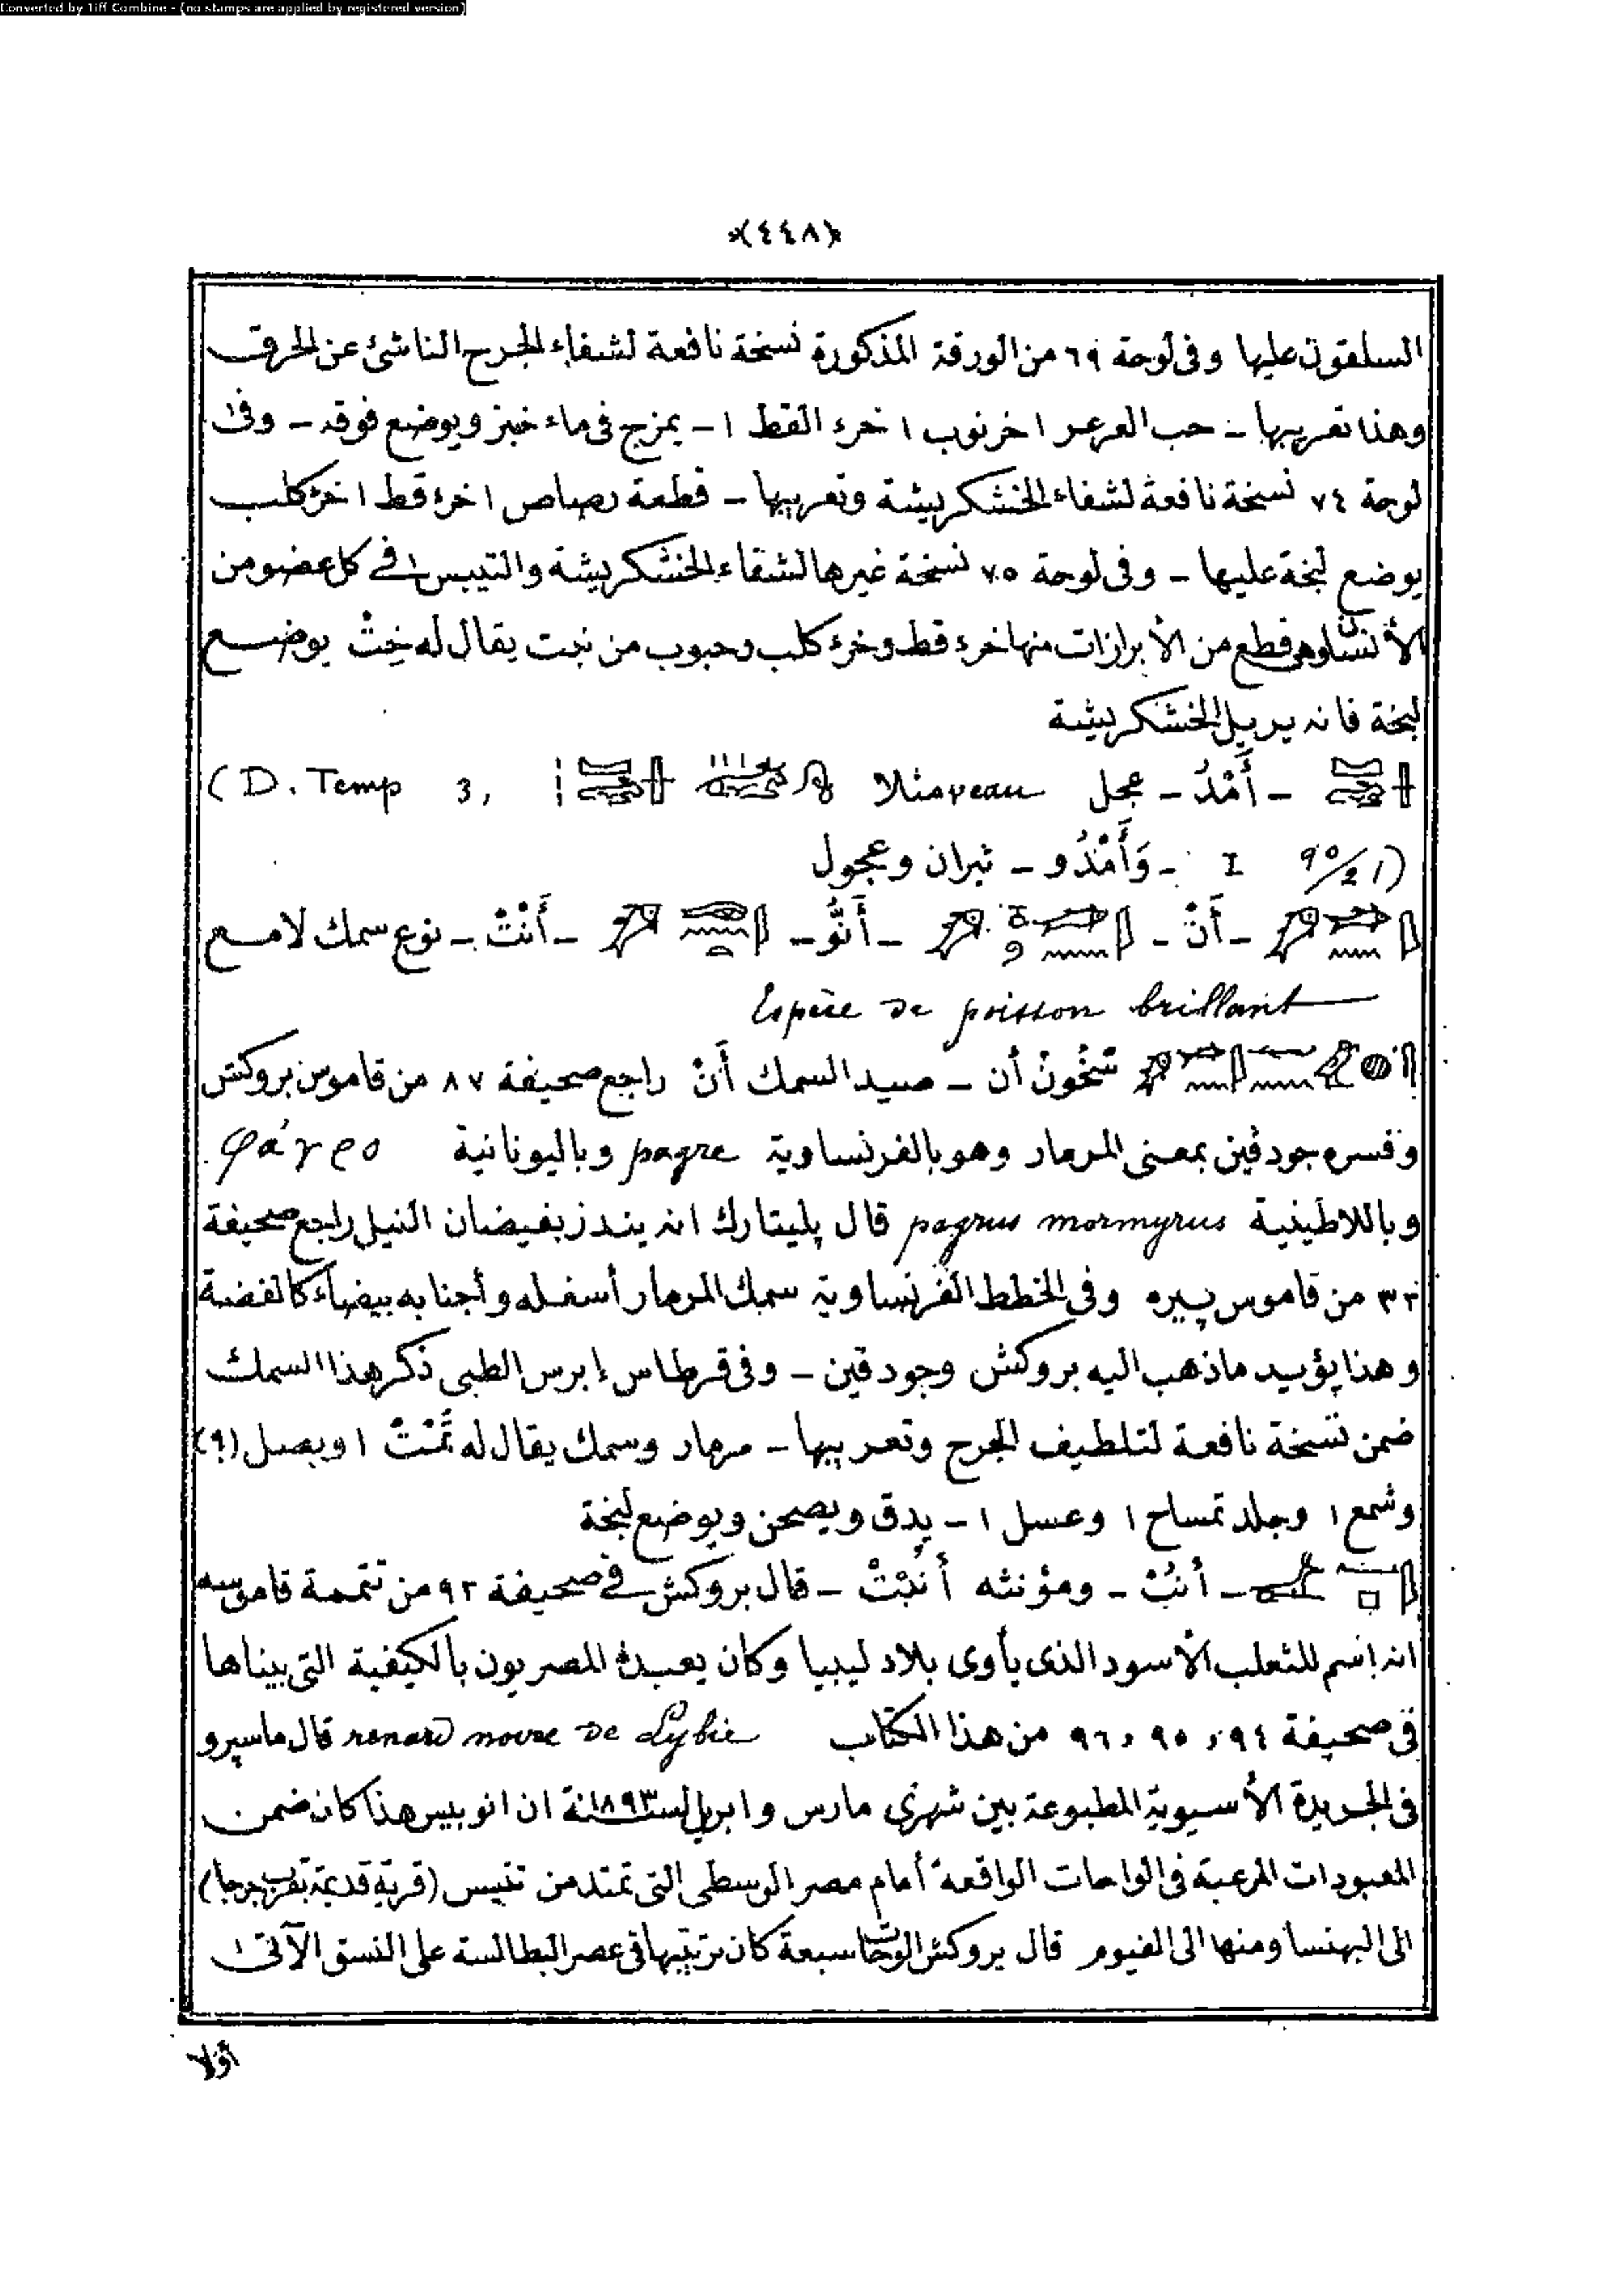 Converted by Tiff Combine - (no stamps are applied by registered version)
(٤٤٨)
السلقون عليها وفى لوحة ٦٩ من الورقة المذكورة نسخة نافعة لشفاء الجرح الناشئ عن الحرق
وهذا تعريبها - حب العرعر ١ خرنوب ١ خرء القط ١ - يمزج فى ماء خبز ويوضع فوقه - وفى
لوحة ٧٤ نسخة نافعة لشفاء الخشكريشة وتعريبها - قطعة رصاص ١ خرء قط ١ خرء كلب
يوضع لبخة عليها - وفى لوحة ٧٥ نسخة غيرها لشفاء الخشكريشة والتيبس فى كل عضو من
الأنسان وهى قطع من الأبرازات منها خرء قط وخرء كلب وحبوب من نبت يقال له خِتْ يوضع
لبخة فانه يزيل الخشكريشة
- أَمْدُ - عجل veau مثلا (D. Temp 3,
I 90/21) - وَأَمْدُو - ثيران وعجول
- أَنْ - - أَنُّو - - أَنْتْ - نوع سمك لامع
Espèce de poisson brillant
سَخُونْ أن - صيد السمك أَنْ راجع صحيفة ٨٧ من قاموس بروكش
وفسره جودفين بمعنى المرمار وهو بالفرنساوية pagre وباليونانية φάγρο
وباللاطينية pagrus mormyrus قال پليتارك انه ينذر بفيضان النيل راجع صحيفة
٣٣ من قاموس پيره وفى الخطط الفرنساوية سمك المرمار أسفله وأجنابه بيضاء كالفضة
وهذا يؤيد ماذهب اليه بروكش وجودفين - وفى قرطاس إبرس الطبى ذكر هذا السمك
ضمن نسخة نافعة لتلطيف الجرح وتعريبها - مرمار وسمك يقال له تَمْتْ ١ وبصل (؟)
وشمع ١ وجلد تمساح ١ وعسل ١ - يدق ويصحن ويوضع لبخة
- أنبُ - ومؤنثه أَنُبْتْ - قال بروكش فى صحيفة ٩٢ من تتمة قاموسه
انه إسم للثعلب الأسود الذى يأوى بلاد ليبيا وكان يعبده المصريون بالكيفية التى بيناها
فى صحيفة ٩٤, ٩٥, ٩٦ من هذا الكتاب renard noire de Lybie قال ماسپرو
فى الجريدة الأسيوية المطبوعة بين شهرى مارس وابريل سنة ١٨٩٣ ان انوبيس هذا كان ضمن
المعبودات المرعية فى الواحات الواقعة أمام مصر الوسطى التى تمتد من تنيس (قرية قديمة بقرب جرجا)
الى البهنسا ومنها الى الفيوم قال بروكش الوحات سبعة كان ترتيبها فى عصر البطالسة على النسق الآتى
أولا